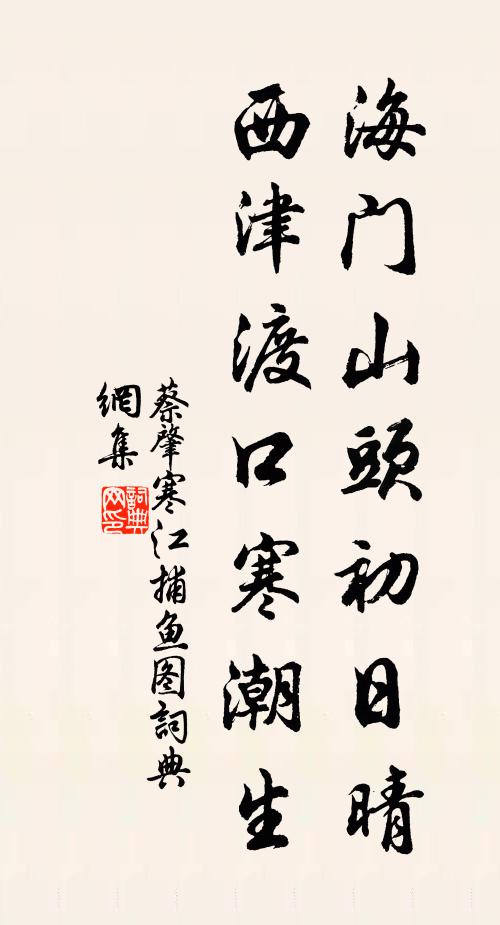 海门山頭初日晴
西津渡口寒潮生
蔡肇寒江捕鱼图詞典
網集
詞典
网印